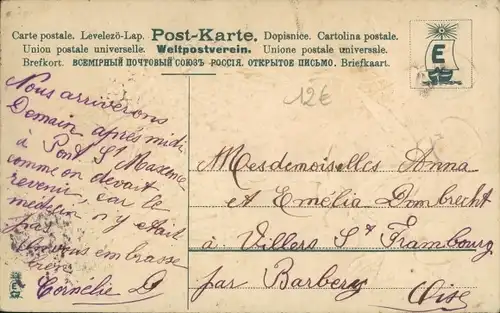 Carte postale. Levelezö-Lap. Post-Karte. Dopisnice. Cartolina postale.
Union postale universelle. Weltpostverein. Unione postale universale.
Brefkort. ВСЕМІРНЫЙ ПОЧТОВЫЙ СОЮЗЪ РОССІЯ. ОТКРЫТОЕ ПИСЬМО. Briefkaart.
E
12€
Nous arriverons
Demain après midi
à Pont St Maxence
comme on devait
revenir, car le
médecin n'y était
pas
vous embrasse
Cornélie D
Mesdemoiselles Anna
et Emélia Dombrecht
à Villers St Frambourg
par Barbery
Oise